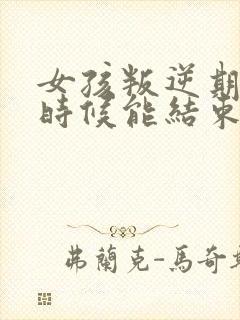 女孩叛逆期
時候能結束
弗蘭克-馬奇